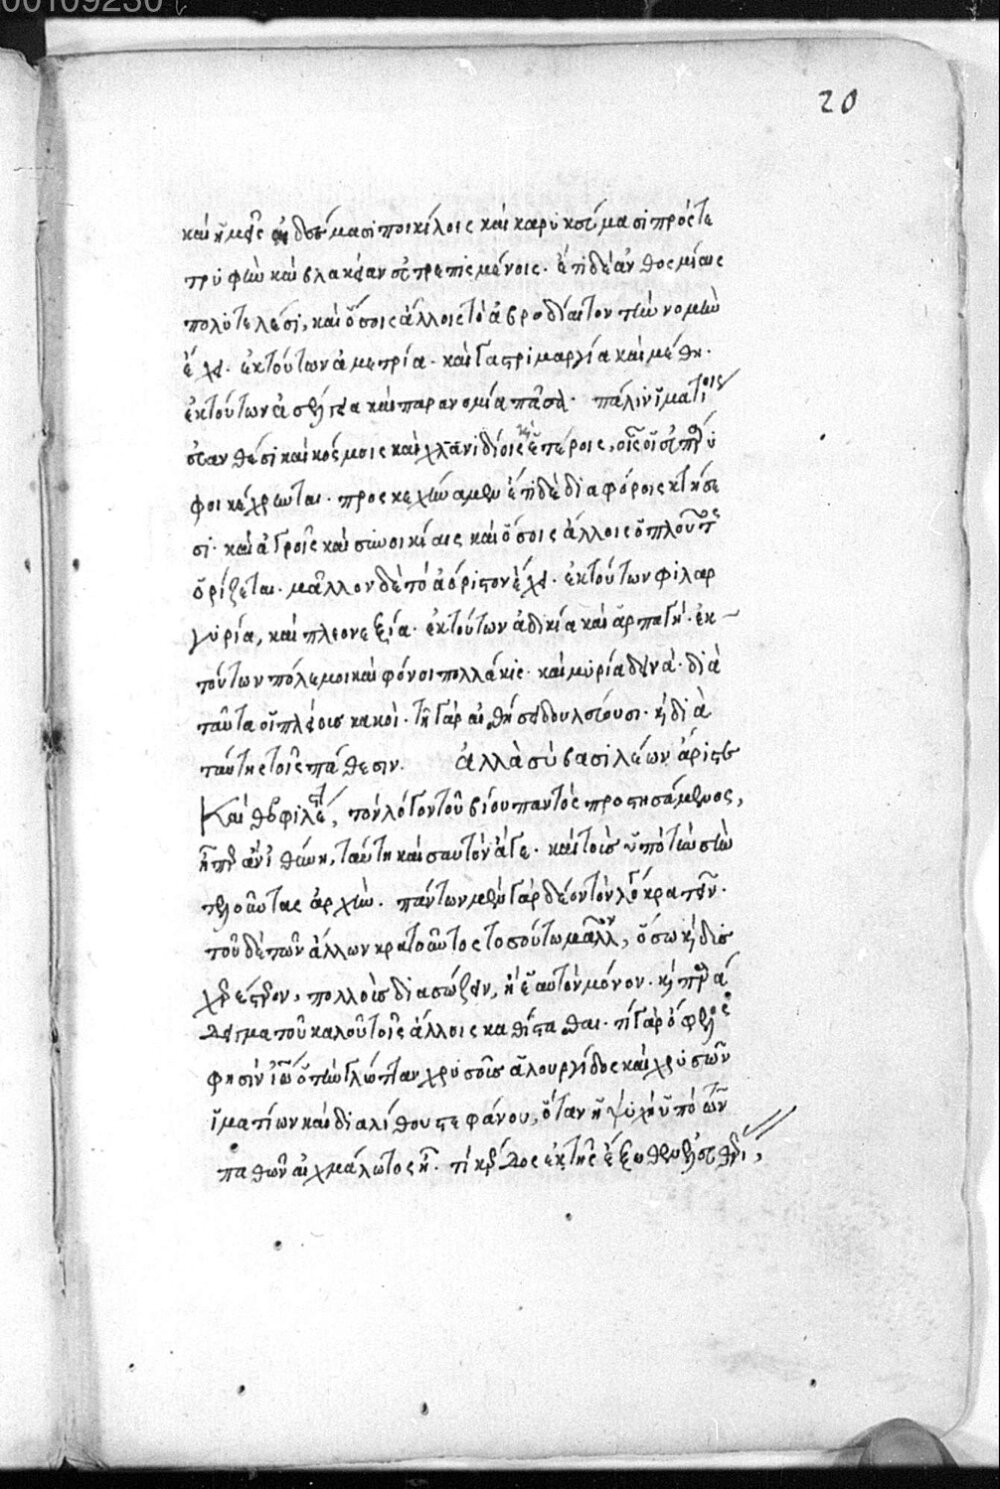 00109230
20
καὶ ἡμεῖς ἐδέσμασι ποικίλοις καὶ καρυκεύμασι πρός τε
τρυφὴν καὶ βλακείαν εὐτρεπισμένοις. ἔτι δὲ ἀνθοσμίαις
πολυτελέσι, καὶ ὅσοις ἄλλοις τὸ ἁβροδίαιτον τὴν νομὴν
ἔχει. ἐκ τούτων ἀμετρία. καὶ γαστριμαργία καὶ μέθη.
ἐκ τούτων ἀσέλγεια καὶ παρανομία πᾶσα. πάλιν ἱματίοις
εὐανθέσι καὶ κόσμοις καὶ χλανιδίοις καὶ ἑτέροις, οἷς οἱ
φοι κέχρωται. προσκεχήναμεν ἔτι δὲ διαφόροις κτήσε
σι. καὶ ἀγροῖς καὶ συνοικίαις καὶ ὅσοις ἄλλοις ὁ πλοῦτος
ὁρίζεται. μᾶλλον δὲ τὸ ἀόριστον ἔχει. ἐκ τούτων φιλαρ
γυρία, καὶ πλεονεξία. ἐκ τούτων ἀδικία καὶ ἁρπαγή. ἐκ
τούτων πόλεμοι καὶ φόνοι πολλάκις. καὶ μυρία δεινά. διὰ
ταῦτα οἱ πλείους κακοί. τῇ γὰρ αἰσθήσει δουλεύουσι. καὶ διὰ
ταύτης τοῖς πάθεσιν. ἀλλὰ σὺ βασιλέων ἄριστε
Καὶ θεοφιλέστατε, τὸν λόγον τοῦ βίου παντὸς προστησάμενος,
ᾗπερ ἂν ἰθύνῃ, ταύτῃ καὶ σαυτὸν ἄγε. καὶ τοὺς ὑπὸ τὴν σὴν
τελοῦντας ἀρχήν. πάντων μὲν γὰρ δέον τὸν λόγον κρατεῖν.
τοῦ δὲ τῶν ἄλλων κρατοῦντος τοσούτῳ μᾶλλον, ὅσῳ καὶ δὶς
χρεστὸν, πολλοὺς διασώζειν, ἢ ἑαυτὸν μόνον. καὶ παρά
δειγμα τοῦ καλοῦ τοῖς ἄλλοις καθίστασθαι. τί γὰρ ὄφελος
φησὶν ὁ τὴν γλῶτταν χρυσοῦς ἁλουργίδος καὶ χρυσῶν
ἱματίων καὶ διαλίθου στεφάνου, ὅταν ἡ ψυχὴ ὑπὸ τῶν
παθῶν αἰχμάλωτος ᾖ. τί κέρδος ἐκ τῆς ἔξωθεν ἐλευθερίας,